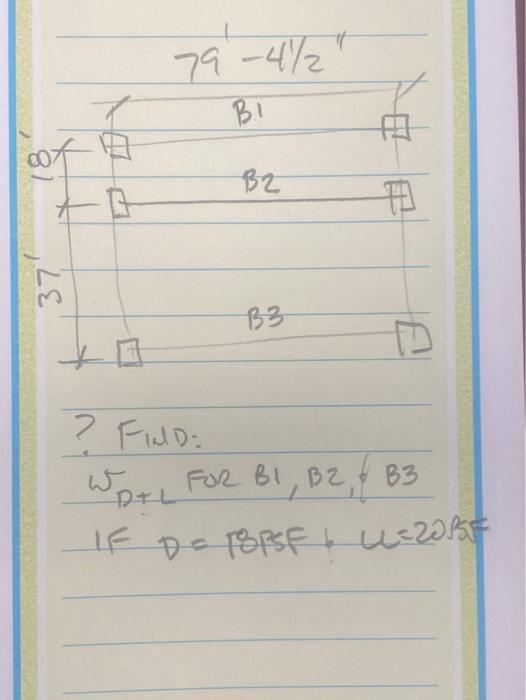 79'-4 1/2"
B1
18'
B2
37'
B3
? FIND:
W D+L FOR B1, B2, & B3
IF D = 18PSF & LL=20PSF